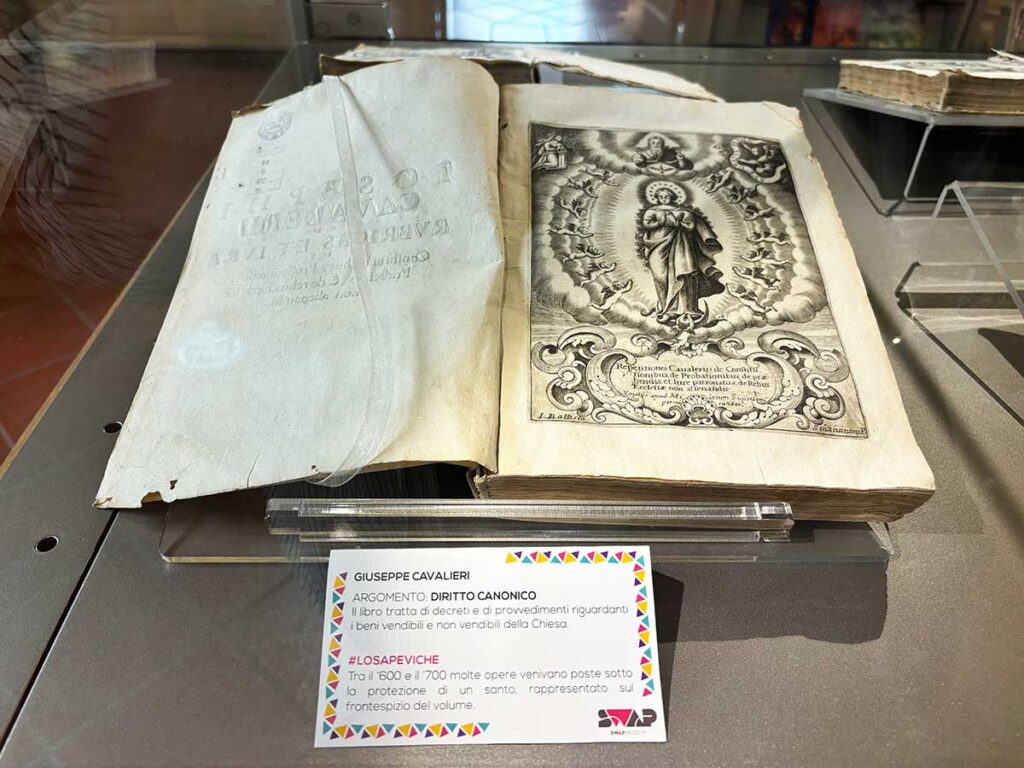 IOSEPHI
CAVALERII
RVBRICAS ET IVRA
non alienandis
Repetitiones Caualerij de Constitu
tionibus, de Probationibus, de præ
bendis, et Iure patronatus, de Rebus
Ecclesiæ non alienandis
Venetijs apud
I. Bat
GIUSEPPE CAVALIERI
ARGOMENTO: DIRITTO CANONICO
Il libro tratta di decreti e di provvedimenti riguardanti
i beni vendibili e non vendibili della Chiesa.
#LOSAPEVICHE
Tra il '600 e il '700 molte opere venivano poste sotto
la protezione di un santo, rappresentato sul
frontespizio del volume.
SWAP
SWAPMUSEUM